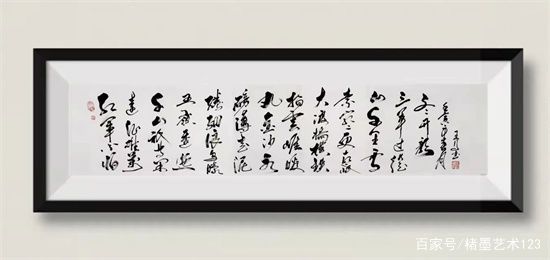 红军不怕
远征难万
水千山只等闲
五岭逶迤
腾细浪乌蒙
磅礴走泥
丸金沙水
拍云崖暖
大渡桥横铁
索寒更喜岷
山千里雪
三军过后
尽开颜
百家号/楮墨艺术123